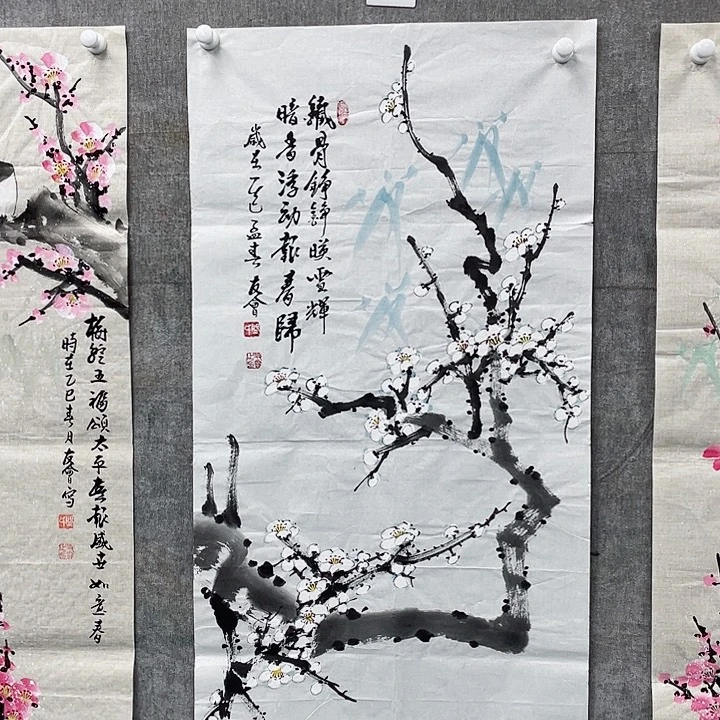 鐵骨錚錚映雪輝
暗香浮动报春歸
歲在乙巳孟春友會
梅綻五福頌太平春報盛世如意春
時在乙巳春月友會写